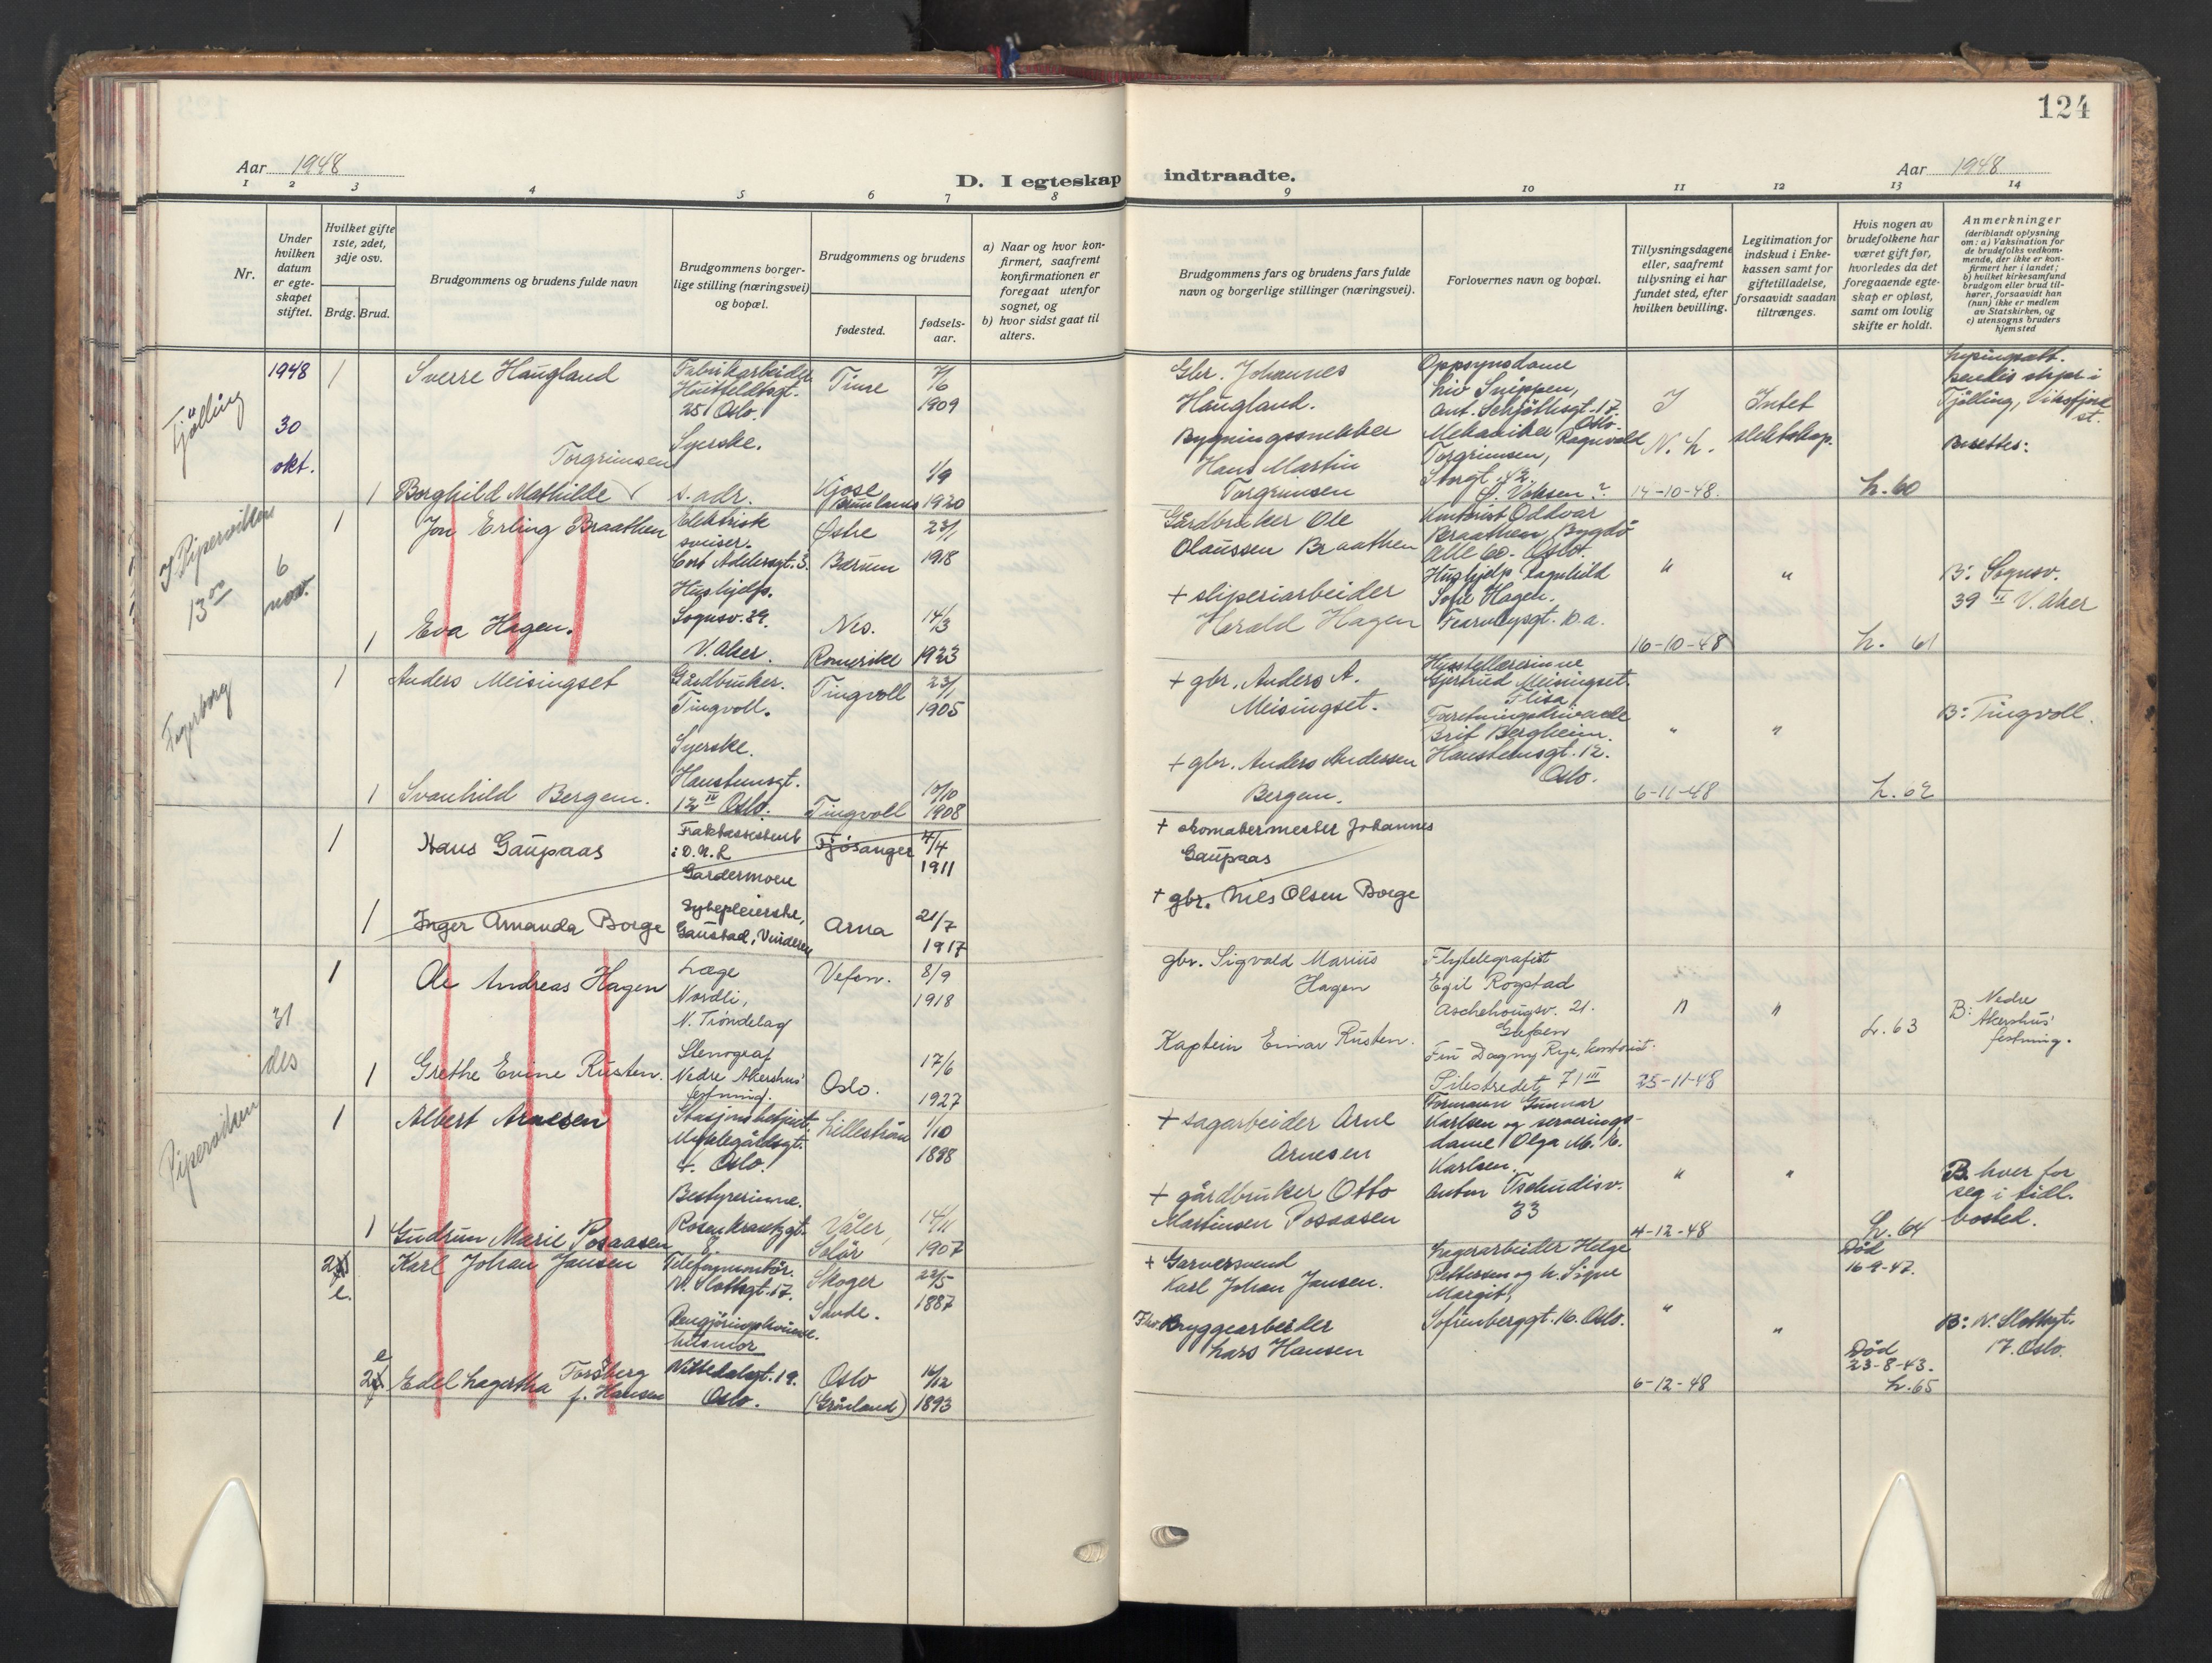 124
Aar 1948
D. I egteskap indtraadte.
Aar 1948
1 2 3 4 5 6 7 8 9 10 11 12 13 14
Nr.
Under hvilken datum er egteskapet stiftet.
Hvilket gifte 1ste, 2det, 3dje osv.
Brdg. Brud.
Brudgommens og brudens fulde navn
Brudgommens borgerlige stilling (næringsvei) og bopæl.
Brudgommens og brudens
fødested.
fødselsaar.
a) Naar og hvor konfirmert, saafremt konfirmationen er foregaat utenfor sognet, og
b) hvor sidst gaat til alters.
Brudgommens fars og brudens fars fulde navn og borgerlige stillinger (næringsvei).
Forlovernes navn og bopæl.
Tillysningsdagene eller, saafremt tillysning ei har fundet sted, efter hvilken bevilling.
Legitimation for indskud i Enkekassen samt for giftetilladelse, forsaavidt saadan tiltrænges.
Hvis nogen av brudefolkene har været gift før, hvorledes da det foregaaende egteskap er opløst, samt om lovlig skifte er holdt.
Anmerkninger
(deriblandt oplysning om: a) Vaksination for de brudefolks vedkommende, der ikke er konfirmert her i landet;
b) hvilket kirkesamfund brudgom eller brud tilhører, forsaavidt han (hun) ikke er medlem av Statskirken, og
c) utensogns bruders hjemsted
Tjølling
1948
30
okt.
1
Sverre Haugland
Fabrikarbeider
Huitfeldtsgt.
25 Oslo.
Tinre
7/6
1909
Gbr. Johannes
Haugland.
Oppsynsdame
Liv Snippen,
Ant. Schjøttsgt. 17.
Oslo.
Intet
slektskap.
N. L.
Tjølling,
Bosettes:
1
Torgrimsen
Borghild Mathilde
Syerske.
s. adr.
Kjose
Brunlanes
1/9
1920
Bygningssnekker
Hans Martin
Torgrimsen
Mekaniker Ragnvald
Torgrimsen,
Storgt. 42.
14-10-48.
L. 60
Pipervitken
13 00
6
nov.
1
Jon Erling Braathen
Elektrisk
sveiser.
Cort Adelersgt. 3.
Østre
Bærum
23/1
1918
Gårdbruker Ole
Olaussen Braathen
Kontorist Oddvar
Braathen, Bygdø
Alle 60. Oslo.
"
"
B: Sognsv.
39 II V. Aker
1
Eva Hagen.
Hushjelp.
Sognsv. 39.
V. Aker.
Nes.
Romerike
14/3
1923
+ sliperiarbeider
Harald Hagen
Hushjelp Ragnhild
Sofie Hagen.
Fearnleysgt. 10.a.
16-10-48
L. 61
Fagerborg
1
Anders Meisingset
Gårdbruker.
Tingvoll.
Tingvoll
23/1
1905
+ gbr. Anders A.
Meisingset.
Husstellærerinne
Gjertrud Meisingset.
Flisa.
"
"
B: Tingvoll.
1
Svanhild Bergem.
Syerske.
Hausteensgt.
12 IV Oslo.
Tingvoll
10/10
1908
+ gbr. Anders Andersen
Bergem.
Forretningsdrivende
Brit Bergheim.
Hausteensgt. 12.
Oslo.
6-11-48
L. 62
1
Hans Gaupaas
Fraktassistent
i D.N.L
Gardermoen
Fjøsanger
4/4
1911
+ skomakermester Johannes
Gaupaas
1
Inger Amanda Borge
Sykepleierske,
Gaustad, Vinderen
Arna
21/7
1917
+ gbr. Nils Olsen Borge
31
des
1
Ole Andreas Hagen
Læge
Nordli,
N. Trøndelag
Vefsn.
8/9
1918
gbr. Sigvald Marius
Hagen
Flytelegrafist
Egil Rogstad
Aschehougsv. 21.
Grefsen
"
"
L. 63
B: Nedre
Akershus'
festning.
1
Grethe Evine Rusten.
Stenograf
Nedre Akershus'
festning.
Oslo.
17/6
1927
Kaptein Einar Rusten.
Fru Dagny Rye, kontorist.
Pilestredet 71 III
25-11-48
Pipervitken
1
Albert Arnesen
Stasjonsbetjent.
Munkegårdsgt.
4. Oslo.
Lillestrøm
1/10
1898
+ sagarbeider Arne
Arnesen
Formann Gunnar
Karlsen og serveringsdame
Olga M. K.
Karlsen.
Anton Tschudisv.
33
"
"
B. hver for
seg i tidl.
bosted.
1
Gudrun Marie Posaasen
Bestyrerinne.
Rosenkrantzgt.
8.
Våler,
Solør
14/11
1907
+ gårdbruker Otto
Martinsen Posaasen
4-12-48
L. 64
2
e.
Karl Johan Jansen
Telefonmontør.
N. Slottsgt. 17.
Skoger
Sande.
22/5
1887
+ Garversvend
Karl Johan Jansen.
Lagerarbeider Helge
Pettersen og h. Signe
Margit,
Sofienberggt. 16. Oslo.
"
"
Død
16-9-47.
B: N. Slottsgt.
17. Oslo.
e
2
Edel Lagertha Forsberg
f. Hansen
Rengjøringskvinne.
husmor
Nittedalsgt. 19.
Oslo.
Oslo
(Grønland)
14/12
1893
Fhv. Bryggearbeider
Lars Hansen
6-12-48
Død
23-8-43.
L. 65